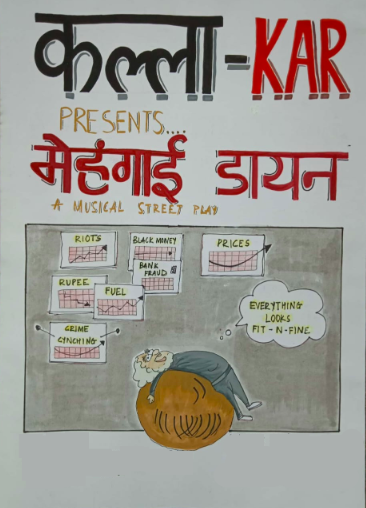 कल्ला-KAR
PRESENTS....
मेहंगाई डायन
A MUSICAL STREET PLAY
RIOTS
BLACK MONEY
PRICES
BANK
FRAUD
RUPEE
FUEL
CRIME
LYNCHING
EVERYTHING
LOOKS
FIT-N-FINE